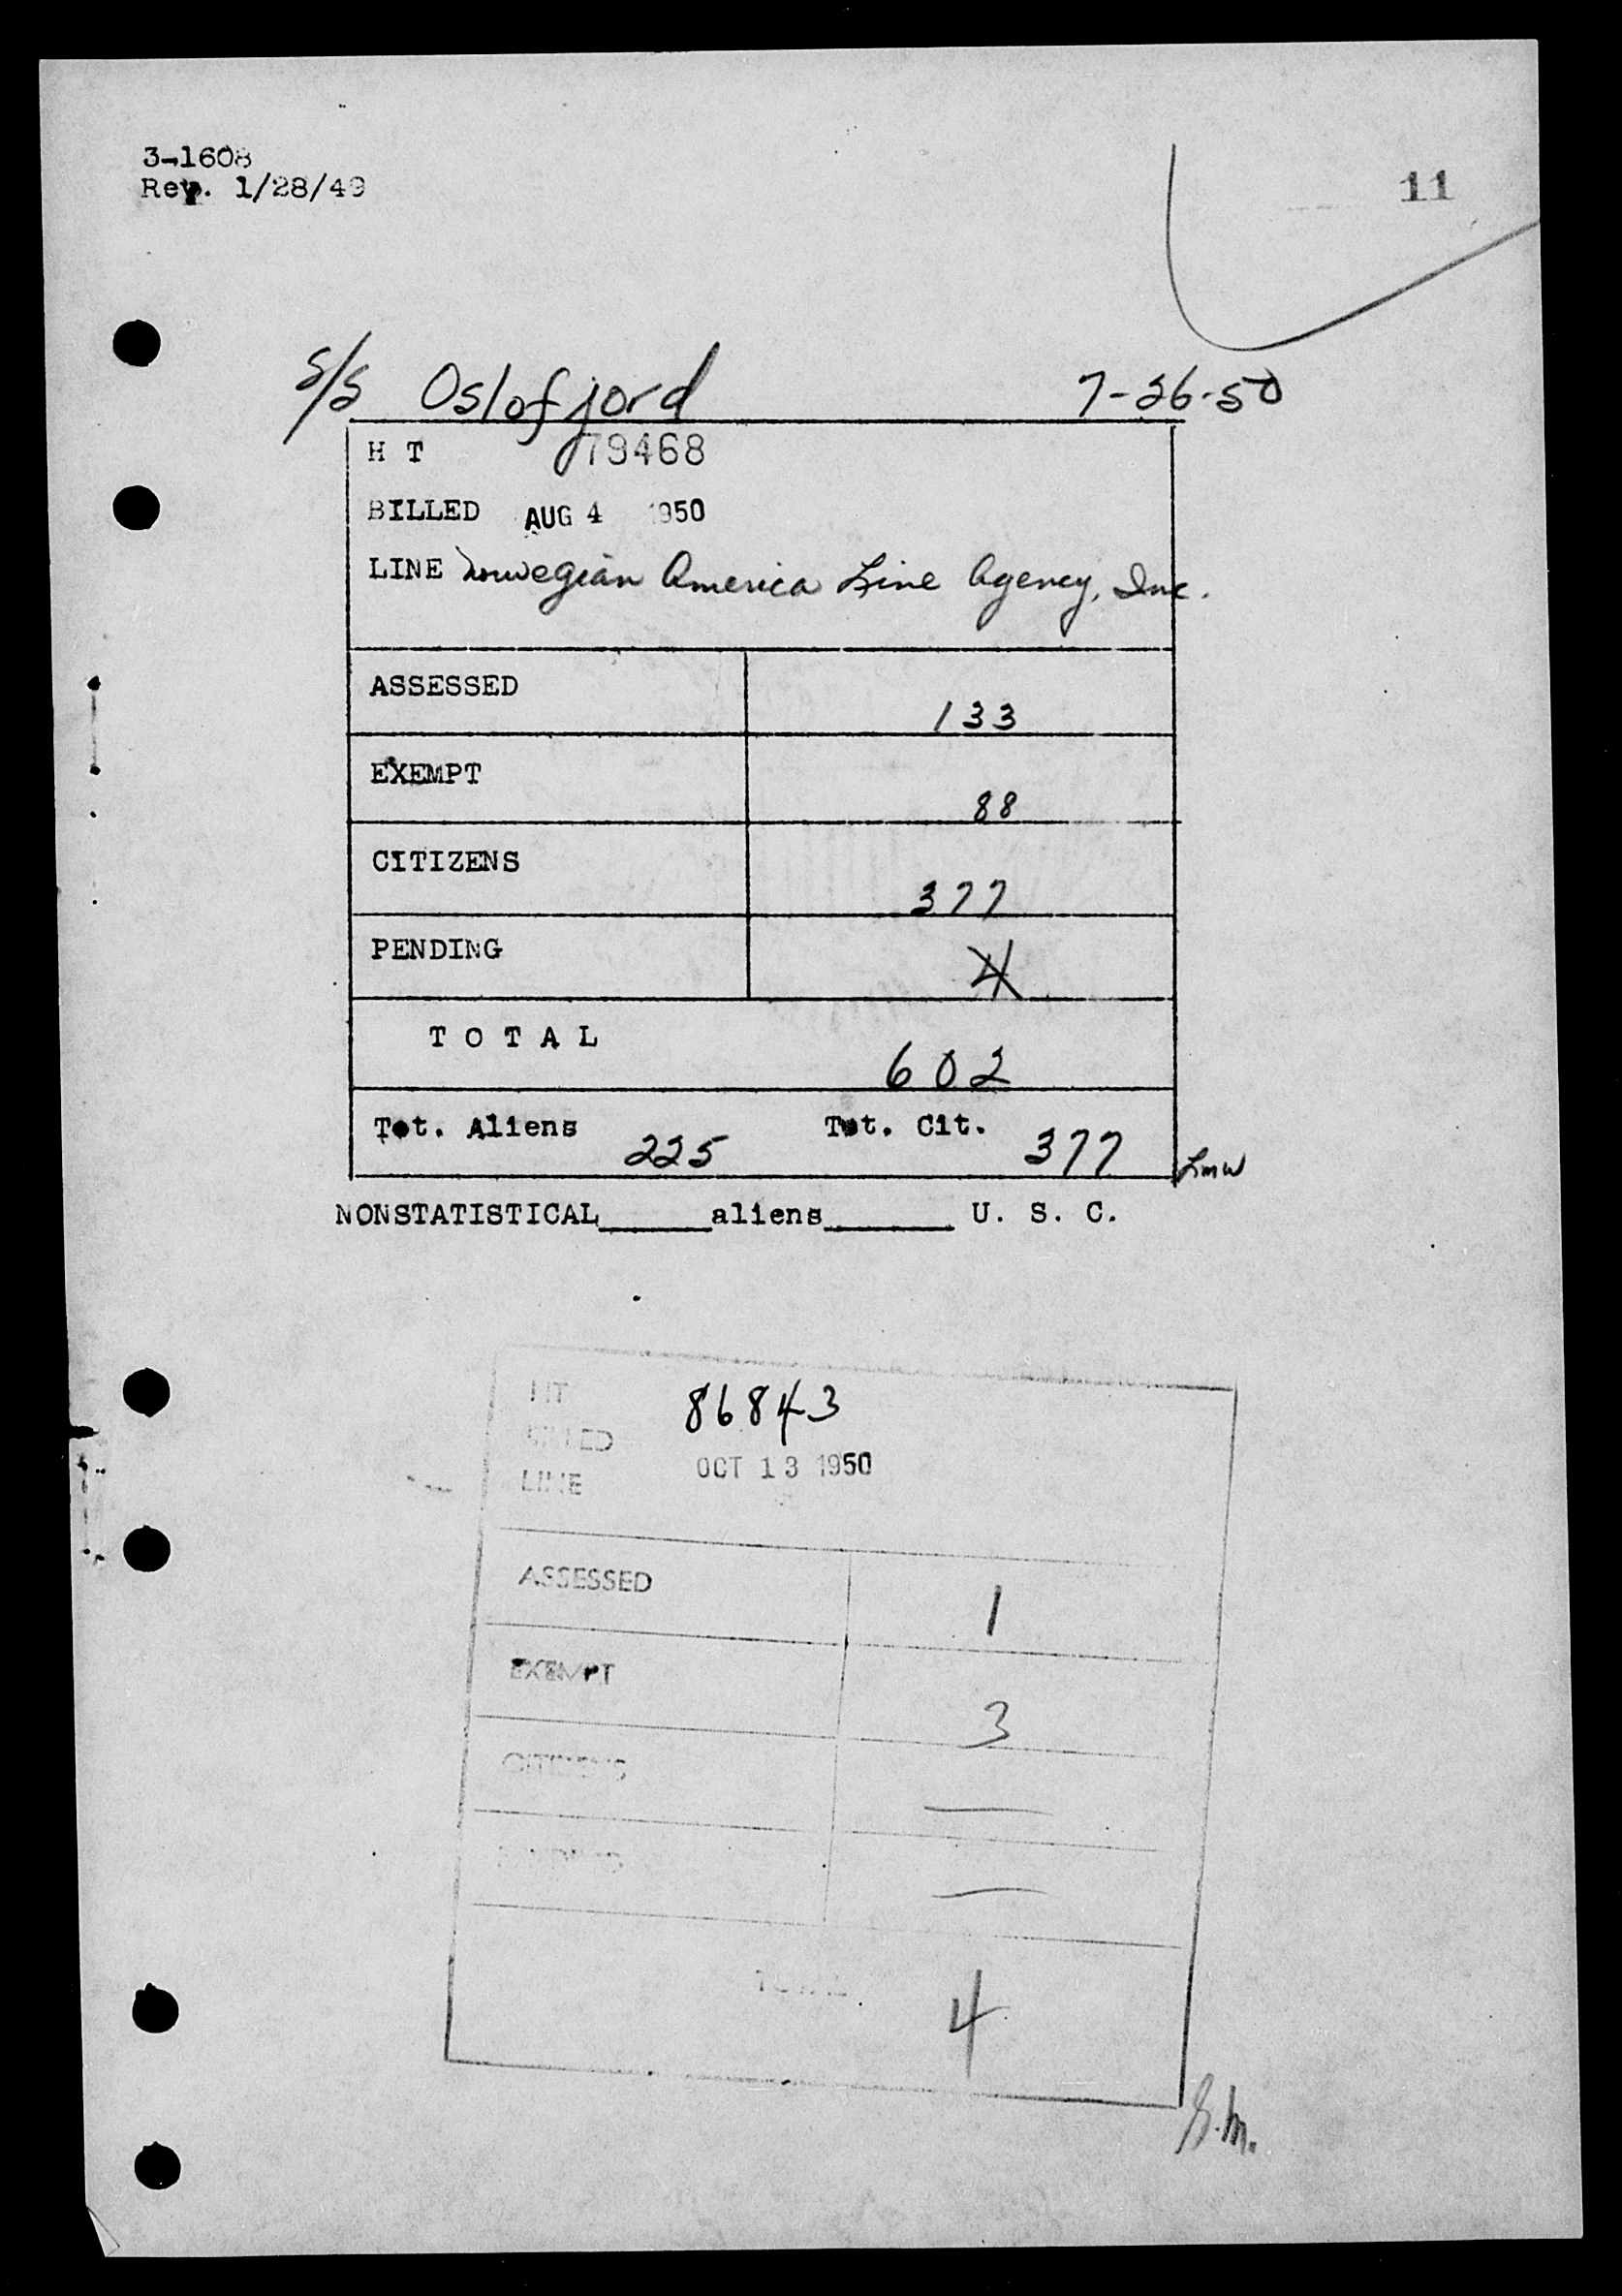 3-1608
Rev. 1/28/49
11
S/S Oslofjord 7-26-50
H T 79468
BILLED AUG 4 1950
LINE Norwegian America Line Agency, Inc.
ASSESSED 133
EXEMPT 88
CITIZENS 377
PENDING 4
T O T A L 602
Tot. Aliens 225 Tot. Cit. 377 LMW
NONSTATISTICAL______aliens_______ U. S. C.
HT 86843
BILLED OCT 13 1950
LINE
ASSESSED 1
EXEMPT 3
CITIZENS —
PENDING —
TOTAL 4